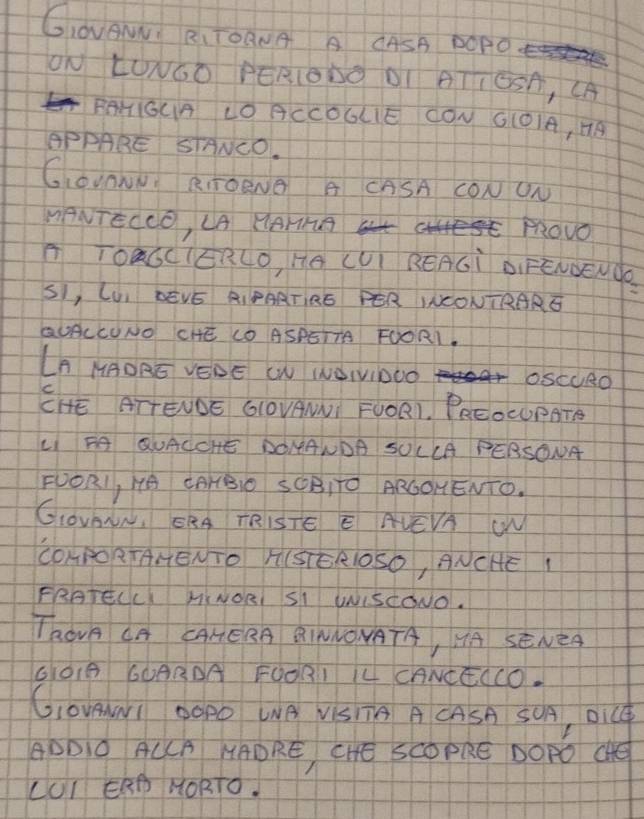 GIOVANNI RITORNA A CASA DOPO
UN LUNGO PERIODO DI ATTESA, LA
FAMIGLIA LO ACCOGLIE CON GIOIA, MA
APPARE STANCO.
GIOVANNI RITORNA A CASA CON UN
MANTELLO, LA MAMMA PROVO
A TOGLIERLO, MA LUI REAGÌ DIFENDENDO
SI, LUI DEVE RIPARTIRE PER INCONTRARE
QUALCUNO CHE LO ASPETTA FUORI.
LA MADRE VEDE UN INDIVIDUO OSCURO
CHE ATTENDE GIOVANNI FUORI. PREOCUPATA
LI FA QUALCHE DOMANDA SULLA PERSONA
FUORI, MA CAMBIO SUBITO ARGOMENTO.
GIOVANNI ERA TRISTE E AVEVA UN
COMPORTAMENTO MISTERIOSO, ANCHE I
FRATELLI MINORI SI UNISCONO.
TROVA LA CAMERA RINNOVATA, MA SENZA
GIOIA GUARDA FUORI IL CANCELLO.
GIOVANNI DOPO UNA VISITA A CASA SUA, DICE
ADDIO ALLA MADRE, CHE SCOPRE DOPO CHE
LUI ERA MORTO.